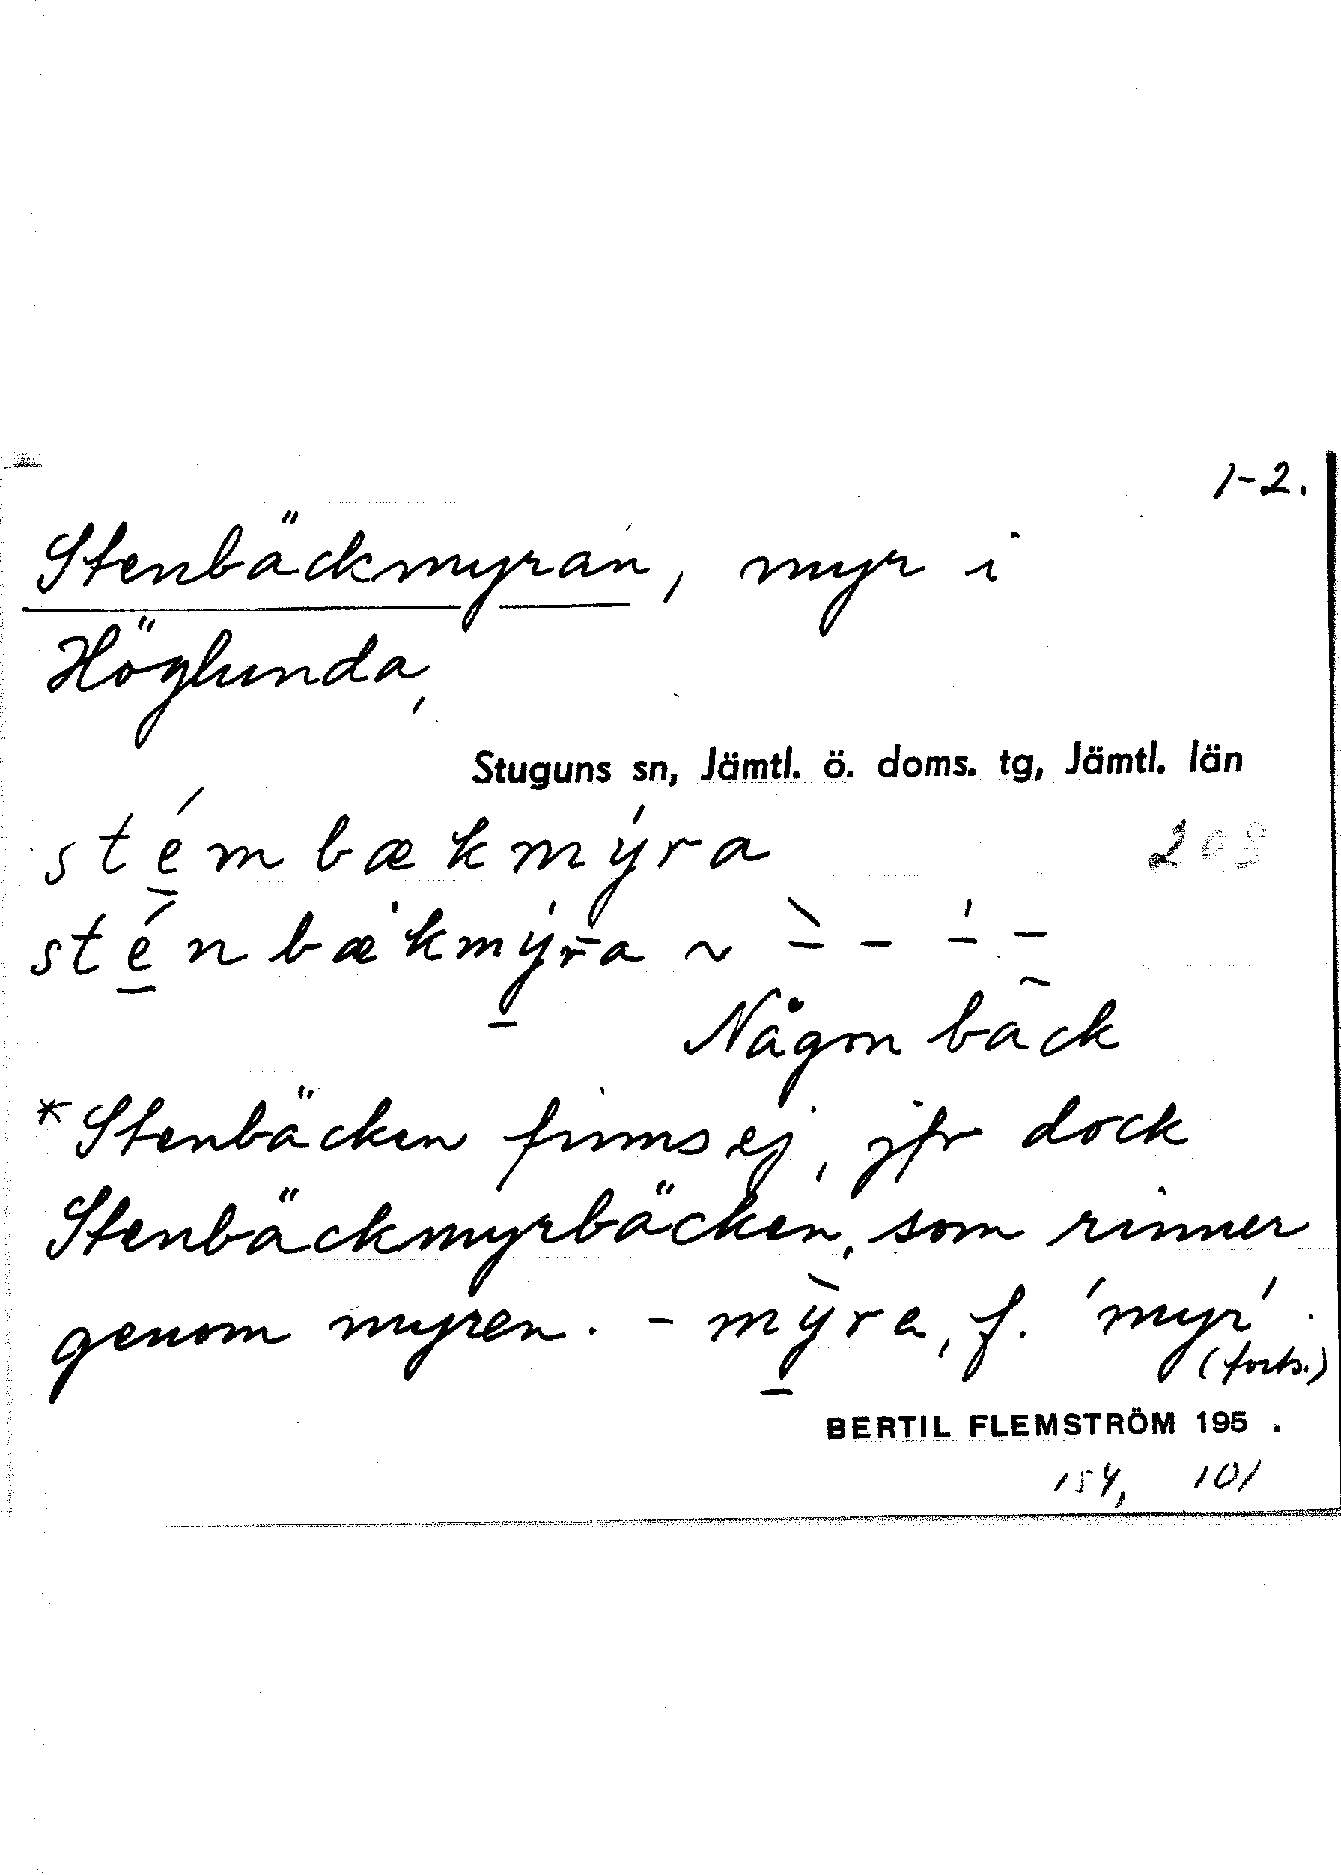 1-2.
Stenbäckmyran, myr i
Höglunda,
Stuguns sn, Jämtl. ö. doms. tg, Jämtl. län
stémbækmýra
208
sténbækmýra ~ `− − ´− −
Någon bäck
*Stenbäcken finns ej, jfr dock
Stenbäckmyrbäcken, som rinner
genom myren. - mỳra, f. 'myr'.
(forts.)
BERTIL FLEMSTRÖM 195 .
154, 101